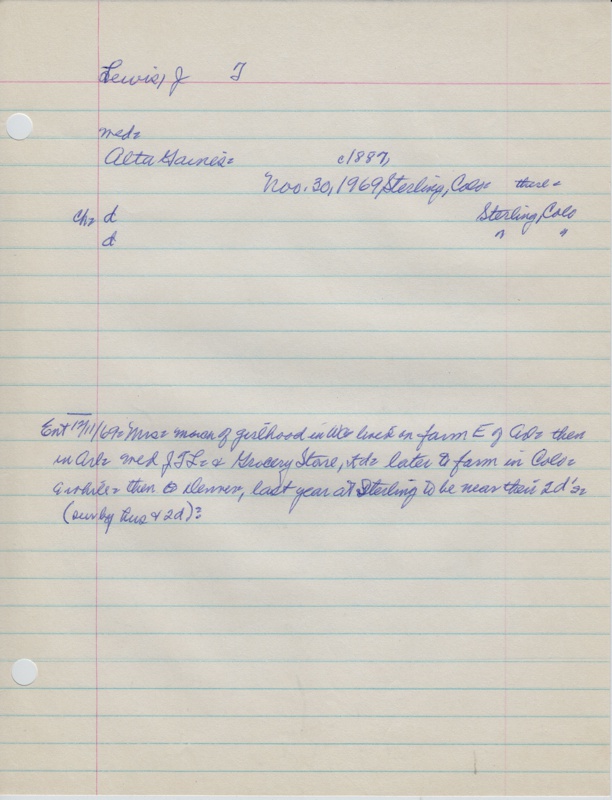 Lewis, J T
med=
Alta Gaines= c1887,
Nov. 30, 1969, Sterling, Colo= there=
Ch= d Sterling, Colo
d " "
Ent 12/11/69= Mrs= most of girlhood in Wa lived on farm E of then
in Arl= med J T L= & Grocery Store, later to farm in Colo=
awhile= then to Denver, last year at Sterling to be near their 2d's=
(surv by hus & 2d)=